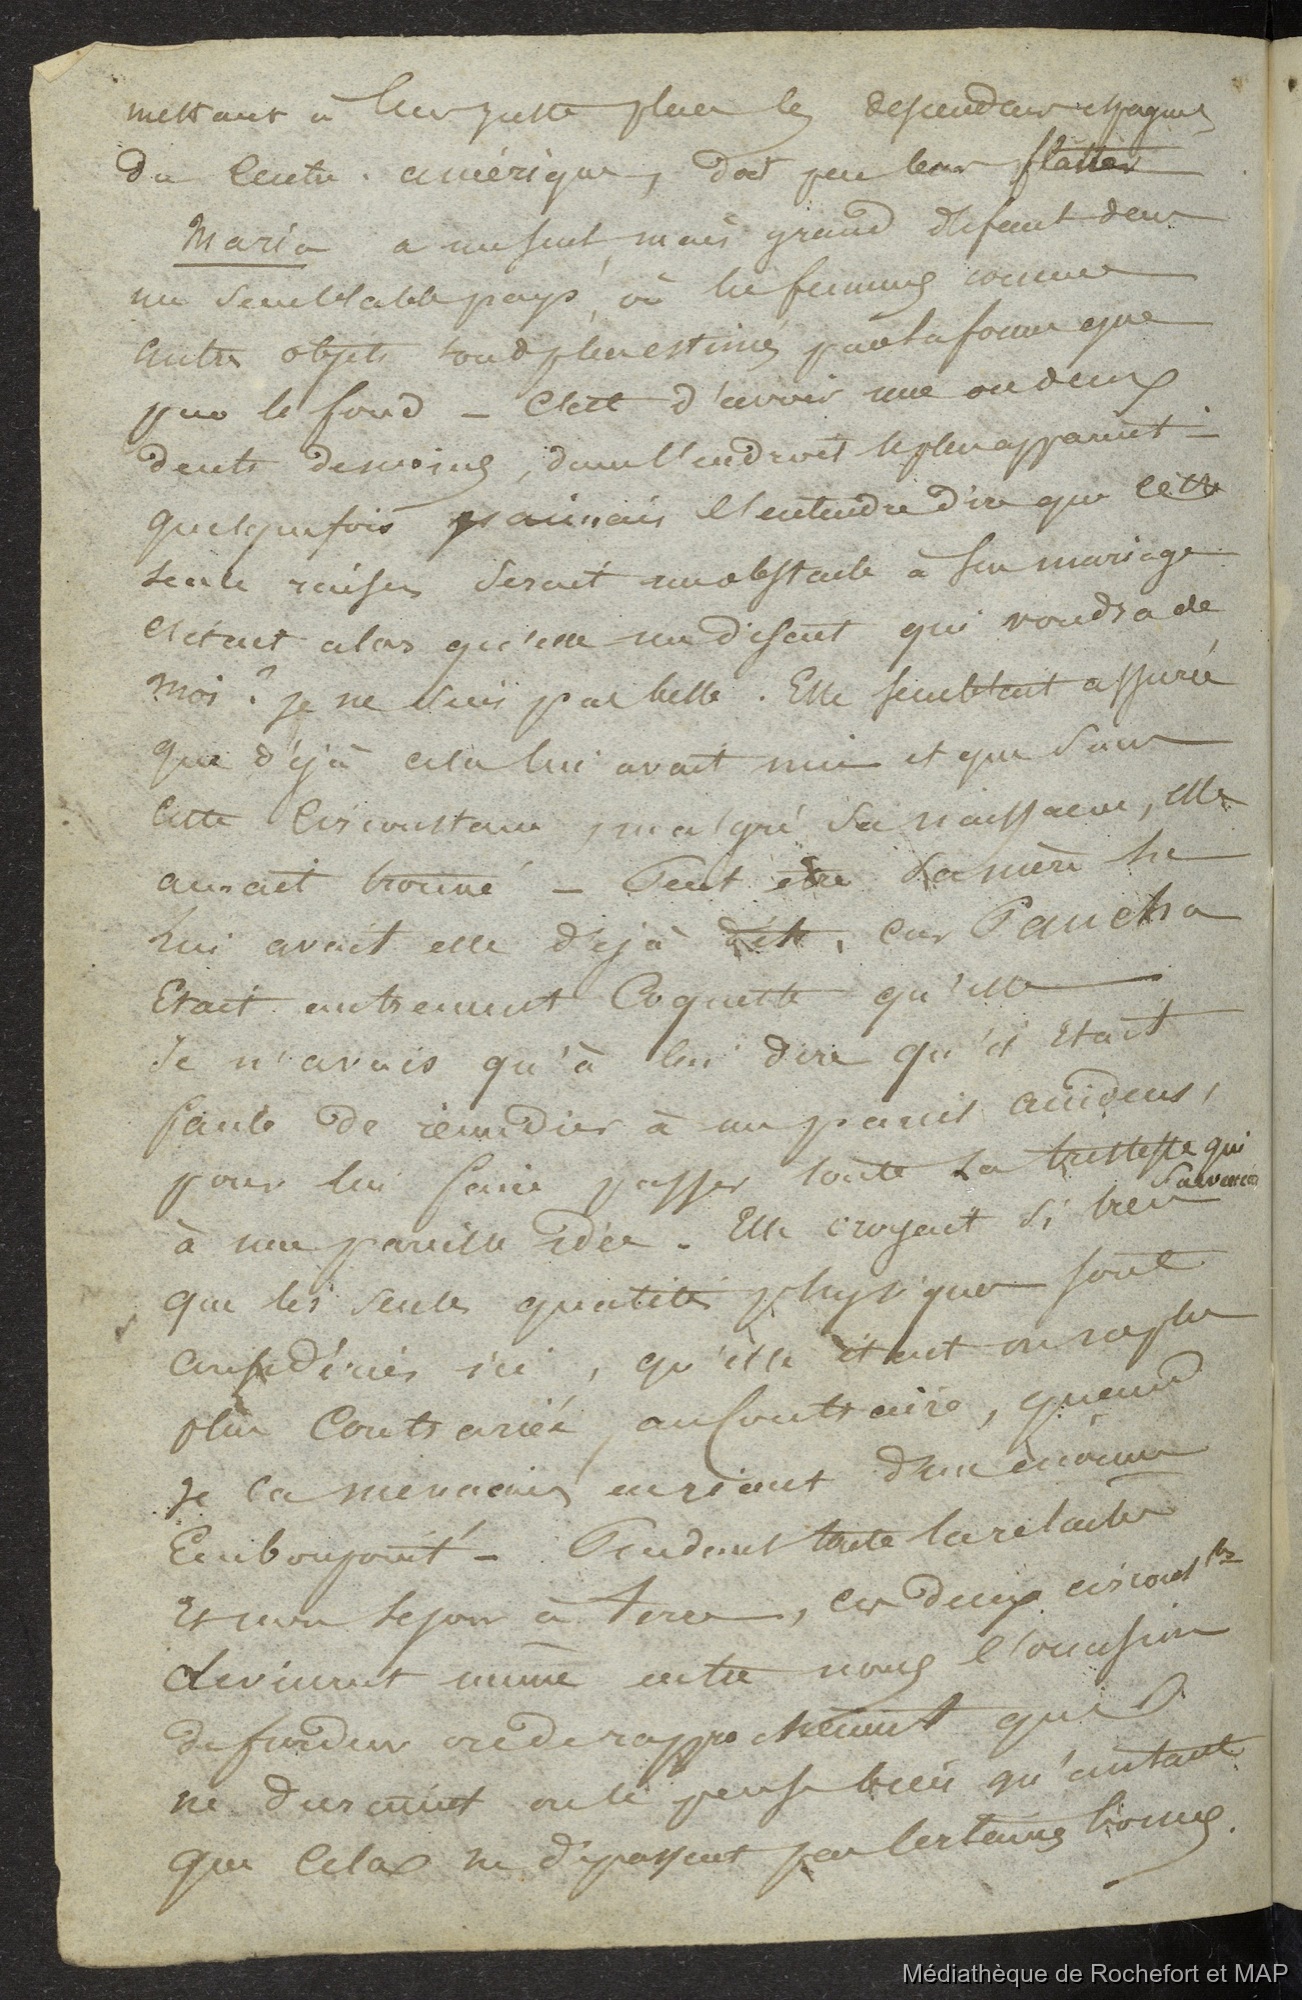 mettant à leur juste place les descendans espagnols
du Centre. amérique, doit peu leur flatter
Maria a un seul, mais grand défaut dans
un semblable pays, où les femmes comme
autres objets sont plus estimés par la forme que
par le fond – C'est d'avoir une ou deux
dents de moins, dans l'endroit le plus apparent –
quelquefois j'aimais l'entendre dire que cette
seule raison serait un obstacle à son mariage
C'était alors qu'elle me disait qui voudra de
moi ? je ne suis pas belle. Elle semblait assurée
que déjà cela lui avait nui et que sans
cette circonstance, malgré sa naissance, elle
aurait trouvé – Peut être sa mère le
lui avait elle déjà dit, car Pancha
Etait autrement Coquette qu'elle
Je n'avais qu'à lui dire qu'il Etait
facile de remédier à un pareil accident,
pour lui faire passer toute la tristesse qui
à une pareille idée. Elle croyait si bien
que les seules qualités physiques sont
considérées ici, qu'elle était on ne peut
plus Contrariée, au Contraire, quand
Je la menaçais en riant d'un énorme
Embonpoint – Pendant toute la relache
Et mon séjour à terre, ces deux circonst.ces
devinrent même entre nous l'occasion
de froideur ou de rapprochement qui
ne duraient on le pense bien qu'autant
que cela ne dépassent pas certaines bornes.